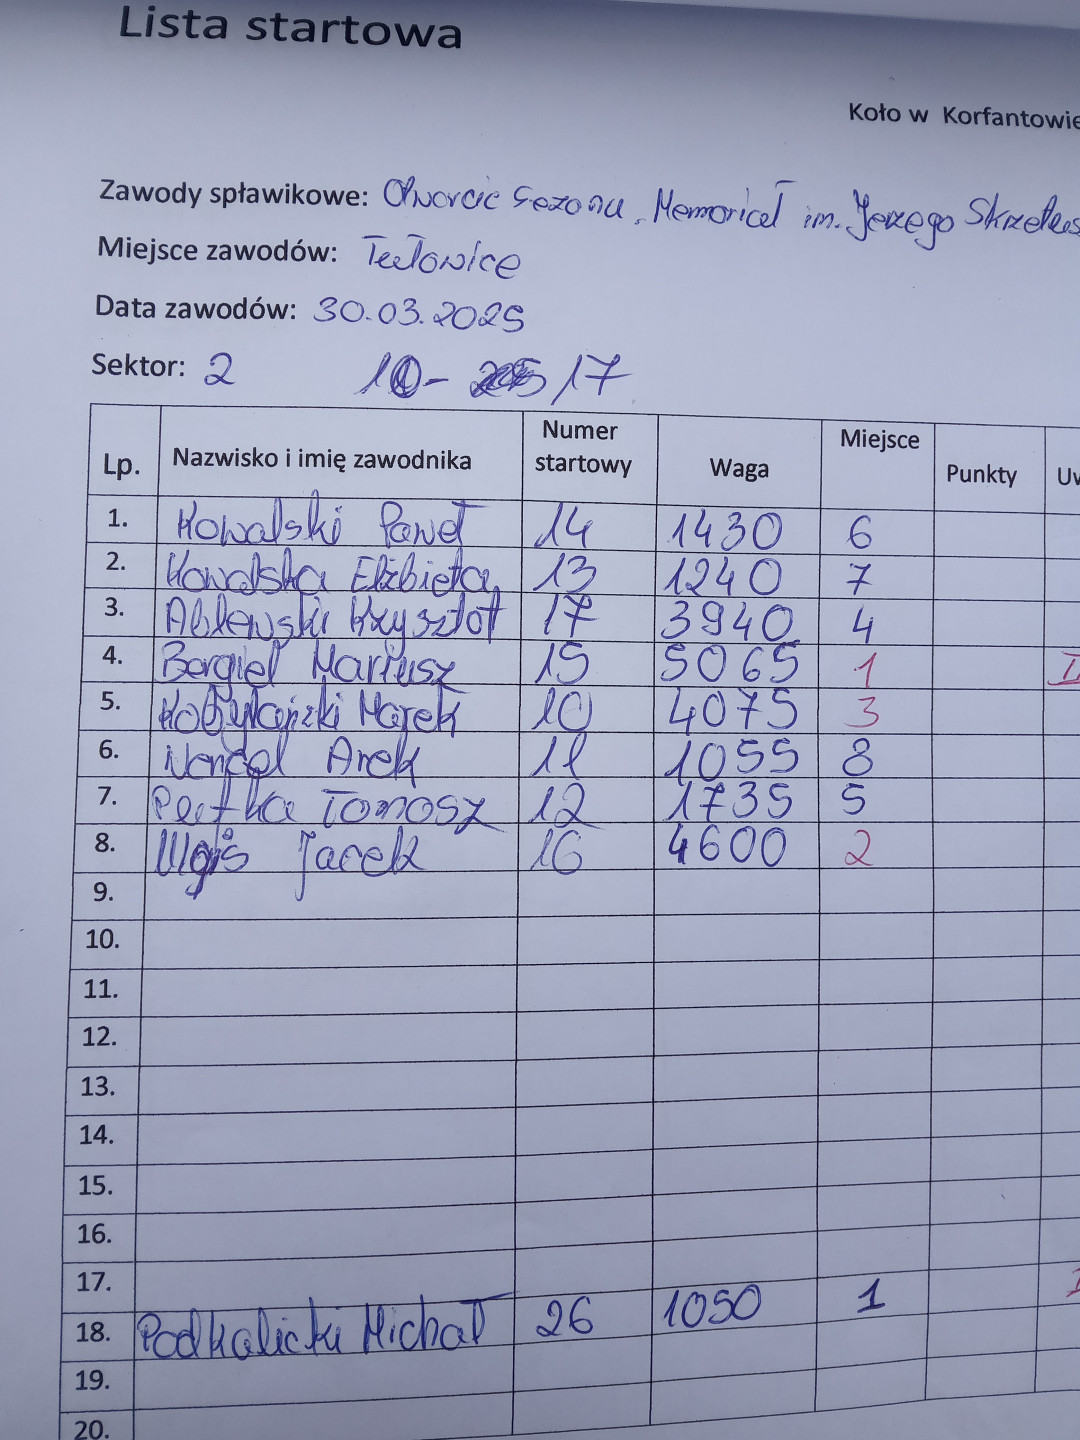 Lista startowa
Koło w Korfantowie
Zawody spławikowe: Otwarcie Sezonu, Memoriał im. Jerzego
Miejsce zawodów: Tułowice
Data zawodów: 30.03.2025
Sektor: 2 10- 17
Lp. Nazwisko i imię zawodnika Numer startowy Waga Miejsce Punkty
1. Kowalski Paweł 14 1430 6
2. Kowalska Elżbieta 13 1240 7
3. Ablewski Krzysztof 17 3940 4
4. Bargiel Mariusz 15 5065 1
5. Kobylański Marek 10 4075 3
6. Wencel Arek 11 1055 8
7. Tomasz 12 1735 5
8. Jacek 16 4600 2
9.
10.
11.
12.
13.
14.
15.
16.
17.
18. Podkalicki Michał 26 1050 1
19.
20.